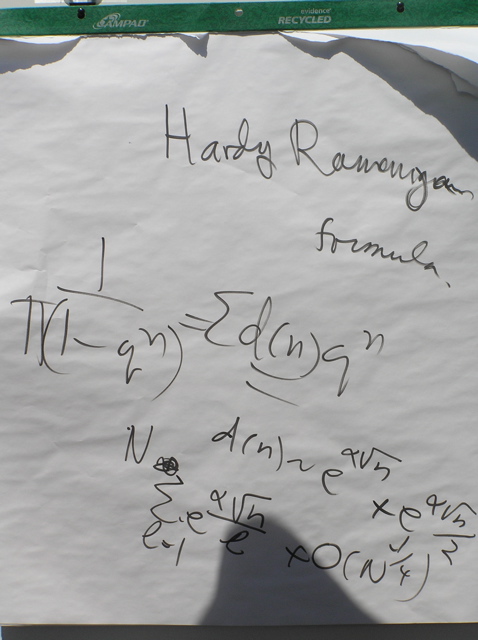 AMPAD evidence RECYCLED
Hardy Ramanujan
formula.
1/Π(1-qⁿ) = Σ d(n) qⁿ
N d(n) ~ e^{α√n}
Σ_{l=1} e^{α√n/l} × e^{α√n/2}
× O(N^{1/4})